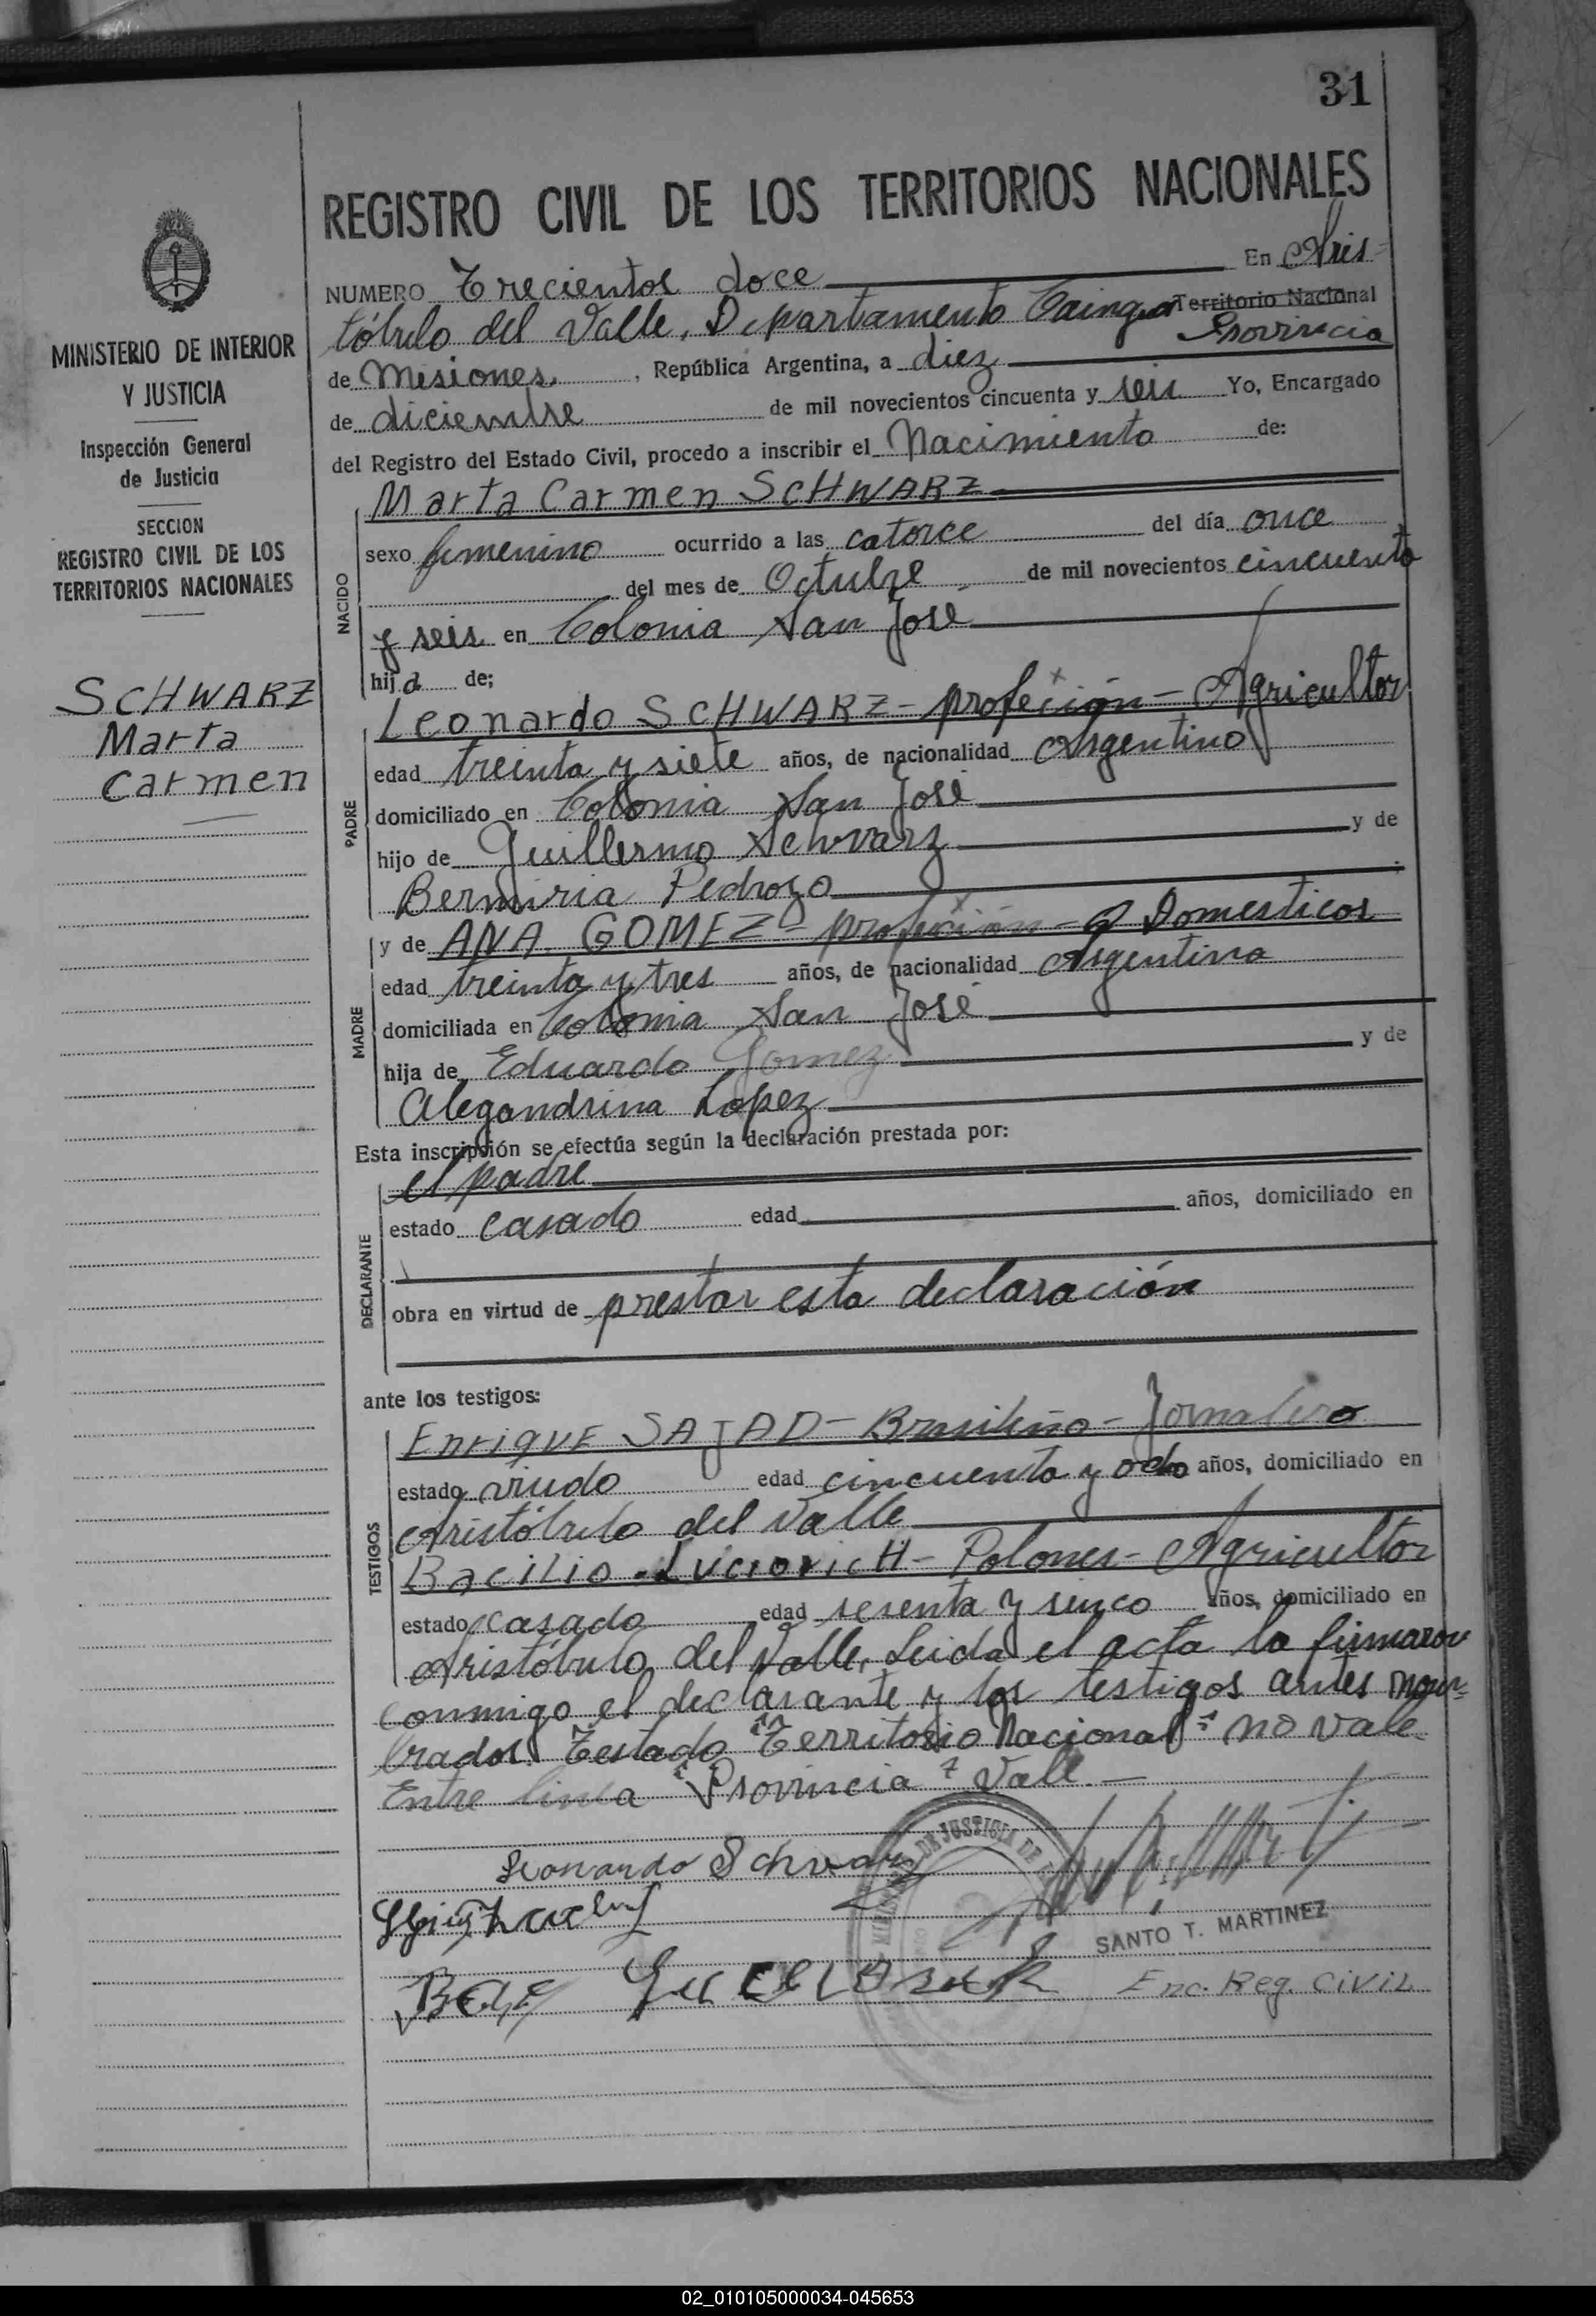 31
REGISTRO CIVIL DE LOS TERRITORIOS NACIONALES
MINISTERIO DE INTERIOR
Y JUSTICIA
Inspección General
de Justicia
SECCION
REGISTRO CIVIL DE LOS
TERRITORIOS NACIONALES
SCHWARZ
Marta
Carmen
NUMERO Trecientos doce En Aris-
tóbulo del Valle, Departamento Cainguas Territorio Nacional
Provincia
de Misiones, República Argentina, a diez
de diciembre de mil novecientos cincuenta y seis Yo, Encargado
del Registro del Estado Civil, procedo a inscribir el Nacimiento de:
NACIDO
Marta Carmen SCHWARZ
sexo femenino ocurrido a las catorce del día once
del mes de Octubre de mil novecientos cincuenta
y seis en Colonia San José
hija de;
PADRE
Leonardo SCHWARZ - profeción - Agricultor
edad treinta y siete años, de nacionalidad Argentino
domiciliado en Colonia San José
hijo de Guillermo Schwarz y de
Bermiria Pedrozo
MADRE
y de ANA GOMEZ - profeción - Q Domesticos
edad treinta y tres años, de nacionalidad Argentina
domiciliada en Colonia San José
hija de Eduardo Gomez y de
Alegandrina Lopez
Esta inscripción se efectúa según la declaración prestada por:
DECLARANTE
el padre
estado casado edad años, domiciliado en
obra en virtud de prestar esta declaración
ante los testigos:
TESTIGOS
Enrique SAJAD - Brasileño - Jornalero
estado viudo edad cincuenta y ocho años, domiciliado en
Aristóbulo del Valle
Bacilio Luciovich - Polones - Agricultor
estado casado edad sesenta y sinco años, domiciliado en
Aristóbulo del Valle, Leida el acta la firmaron
conmigo el declarante y los testigos antes nom-
brados. Testado "Territorio Nacional" no vale
Entre linea "Provincia" Vale -
Leonardo Schwarz
MINISTERIO DE JUSTICIA DE
SANTO T. MARTINEZ
Enc. Reg. Civil
02_010105000034-045653